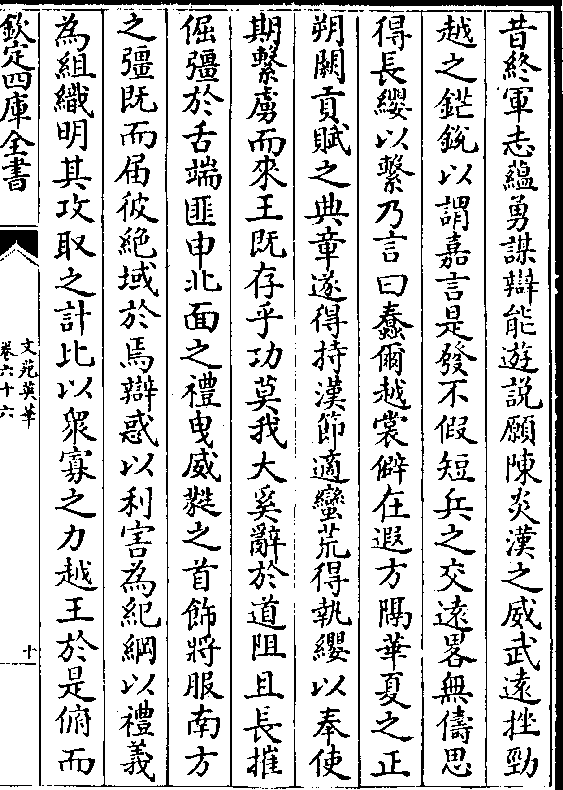 昔終軍志蘊勇謀辯能遊説願陳炎漢之威武遠挫勁
越之鋩鋭以謂嘉言是發不假短兵之交遠畧無儔思
得長纓以繫乃言曰蠢爾越裳僻在遐方隔華夏之正
朔闕貢賦之典章遂得持漢節適蠻荒得執纓以奉使
期繫虜而來王既存乎功莫我大奚辭於道阻且長摧
倔彊於舌端匪申北面之禮曳威蕤之首飾將服南方
之彊既而届彼絶域於焉辯惑以利害為紀綱以禮義
為組織明其攻取之計比以衆寡之力越王於是俯而
欽定四庫全書
文苑英華
卷六十六
十